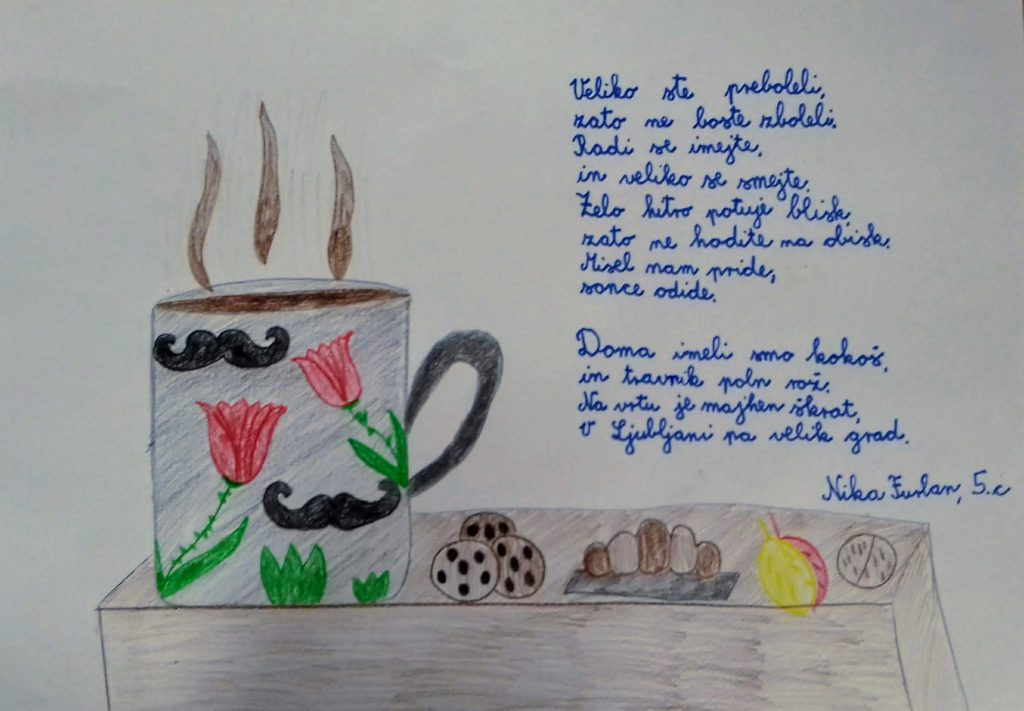 Veliko ste preboleli,
zato ne boste zboleli.
Radi se imejte,
in veliko se smejte.
Zelo hitro potuje blisk,
zato ne hodite na obisk.
Misel nam pride,
sonce odide.
Doma imeli smo kokoš,
in travnik poln rož.
Na vrtu je majhen škrat,
v Ljubljani pa velik grad.
Nika Furlan, 5.c